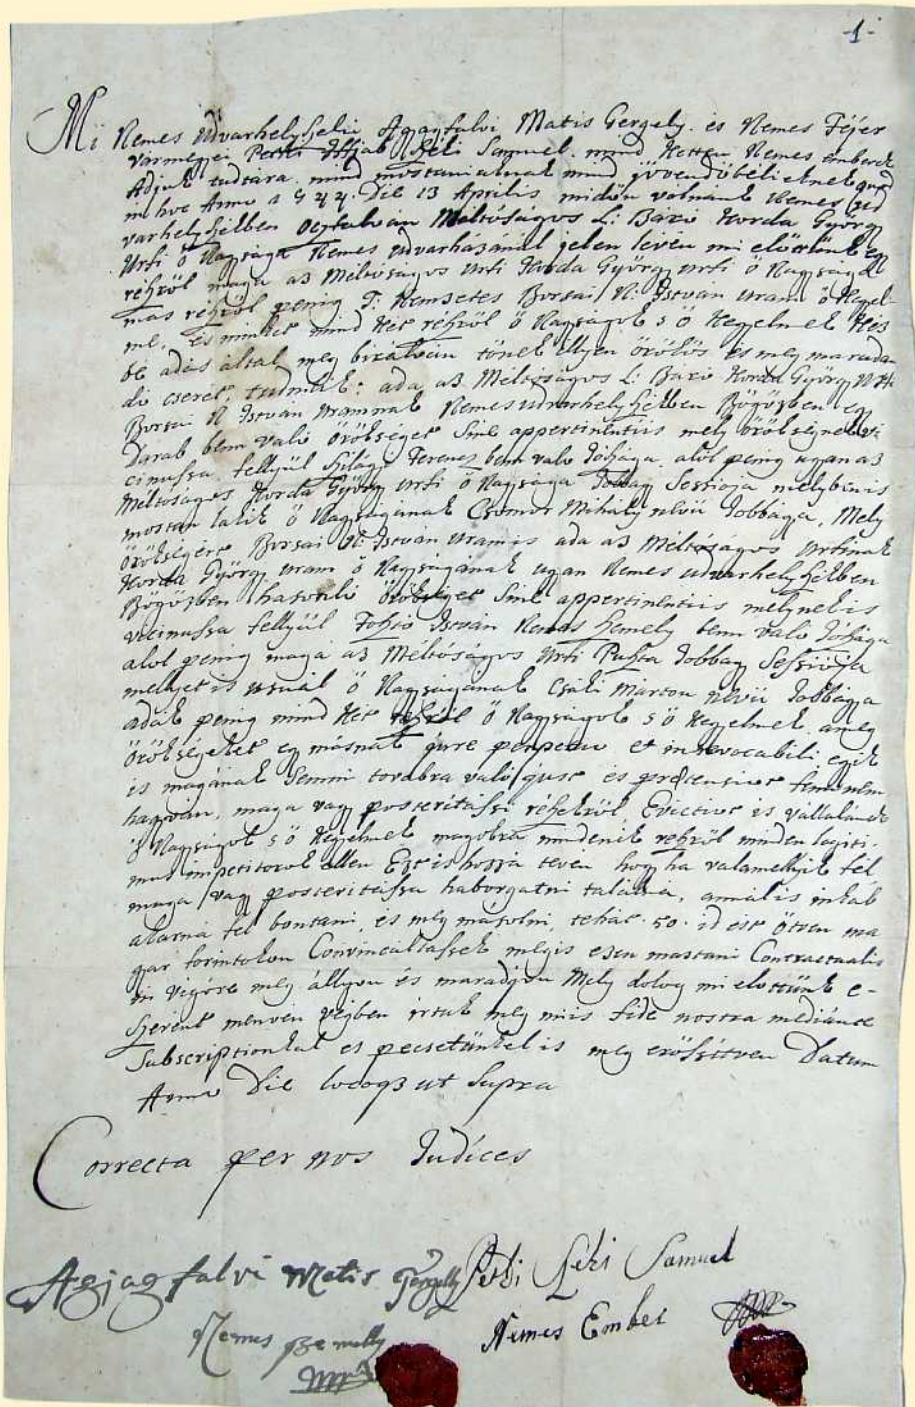 -1-
Mi Nemes Udvarhelyszeki Agyagfalvi Matis Gergely. es Nemes Fejer
varmegyei Petki Iffjab Szeki Samuel. mind ketten Nemes emberek
Adjuk tudtára mind mostaniaknak mind jövendőbélieknek quod
in hoc Anno 1744. Die 13 Aprilis midőn vólnánk Nemes Ud
varhelyszékben Méltóságos L: Baro Korda György
Urfi ő Nagysága Nemes udvarházánál jelen lévén mi előttünk egy
részröl maga az Méltóságos Urfi Korda György urfi ő Nagysága
mas részröl penig T: Nemzetes Borsai N: István uram ő Kegyel-
me, és minket mind két részröl ő Nagyságok s ő Kegyelmek kéz
be adás által meg birálván tőnek illyen örökös és meg marada
dó cserét, tudniik: ada az Méltóságos L: Baro Korda György Urfi
Borsai N István Uramnak Nemes udvarhelyszékben Bögözben egy
Darab benn való örökséget Sine appertinentiis mely örökségnek vi
cinussa fellyül Szilágyi Ferencz benn való Jószága alol penig ugyan az
Méltóságos Korda György Urfi ő Nagysága Jobbagy Sessioja melyben is
mostan lakik ő Nagyságának Csomor Mihály nevü Jobbágya, Mely
örökségért Borsai N: István Uram is ada az Méltóságos Urfinak
Korda György uram ő Nagyságának ugyan Nemes udvarhelyszékben
Bögözben hasonló örökséget Sine appertinentiis melynek is
vicinussa fellyül István Nemes Szemely benn való Jószága
alol penig maga az Méltóságos Urfi Puszta Jobbagy Sessioja
mellyet is usuál ő Nagyságának Csáki Márton nevü Jobbágya
adák penig mind két részröl ő Nagyságok s ő Kegyelmek
örökségeket egymásnak jure perpetuo et irrevocabili egyik
is magának semmi továbra való just és praetensiot fenn nem
hagyván, maga vagy posteritássi részekröl, Evictiot is vállalának
ő Nagyságok s ő Kegyelmek magokra mindenik részröl minden legiti-
mus impetitorok ellen Ezt is hozzá tévén hogy ha valamellyik fél
maga vagy posteritássa háborgatni találna, annál is inkáb
akarná fel bontani, és meg másolni, tehát 50. id est ötven ma
gyar forintokon Convincáltassék mégis ezen mastani Contractualis
in vigore meg állyon és maradgyon Mely dolog mi előttünk e-
szerént menvén végben irtuk meg mi is fide nostra mediante
Subscriptionkal és pecsetünkel is meg erősittvén Datum
Anno Die locoq3 ut Supra
Correcta per nos Judices
Agjagfalvi Matis Gergelly Petki Szeki Samuel
Nemes Szemelly Nemes Ember